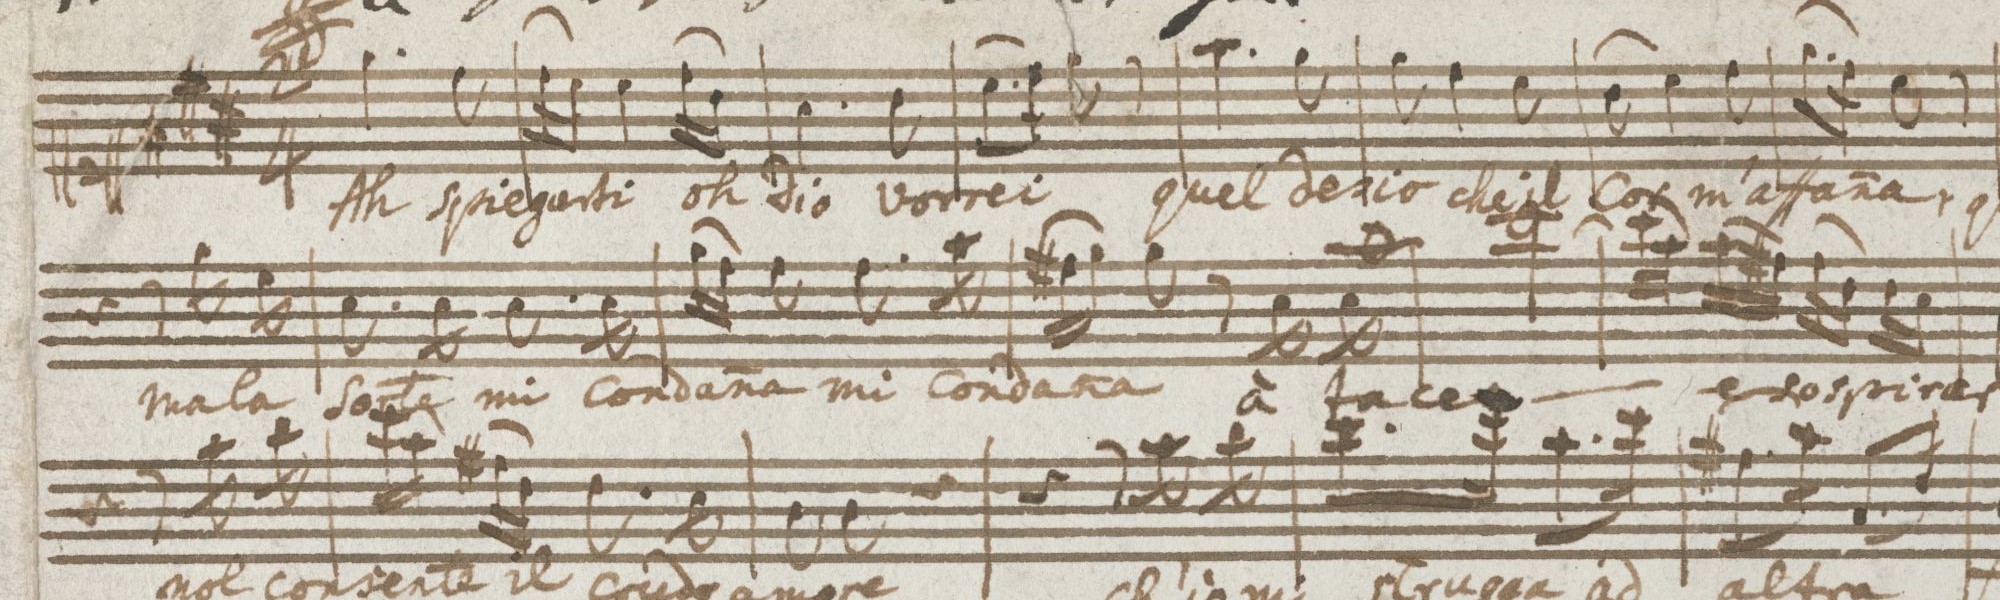 Ah spiegarti oh Dio vorrei quel desio che il Cor m'affaña,
mala sorte mi condaña mi condaña à tacer e sospirar
nol consente il crudo amore ch'io mi strugga ad altra